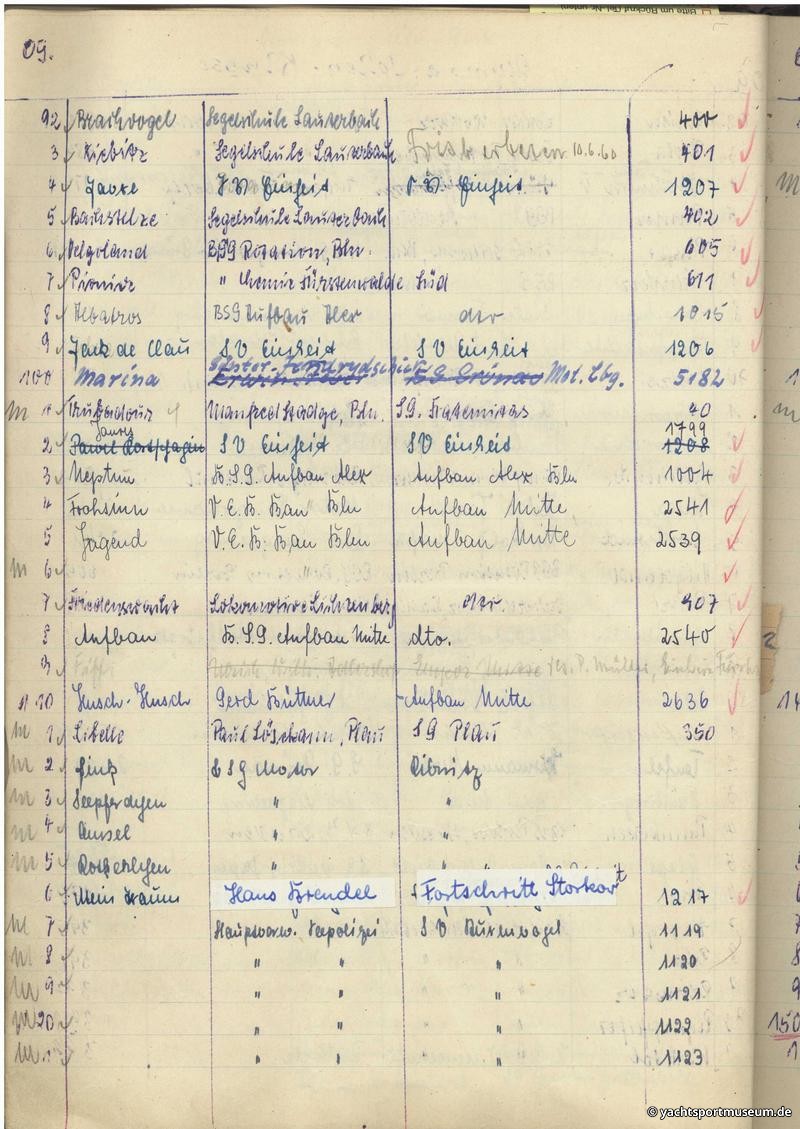 09.
92 Brachvogel Segelschule Lauterbach 400
3 Kiebitz Segelschule Lauterbach 10.6.60 401
4 S V Einheit S V Einheit 1207
5 Bachstelze Segelschule Lauterbach 402
6 Helgoland BSG Rotation, Bln. 605
7 Pionier " Chemie Fürstenwalde Süd 611
8 Albatros BSG Aufbau Alex 1015
9 S V Einheit S V Einheit 1206
100 Marina Mot. Cbg. 5182
m 1 Manfred Bln. S.G. Fraternitas 40
2 S V Einheit SV Einheit 1799 1208
3 Neptun B.S.G. Aufbau Alex Aufbau Alex Bln 1004
4 Frohsinn V.E.B. Bau Bln Aufbau Mitte 2541
5 Jugend V.E.B. Bau Bln Aufbau Mitte 2539
m 6 "
7 Friedenswacht Lokomotive Lichtenberg 907
8 Aufbau B.S.G. Aufbau Mitte dto. 2540
9 P. Müller, Einheit
10 Husch-Husch Gerd Büttner Aufbau Mitte 2636
m 1 Libelle Paul Plau S G Plau 350
m 2 Fink B S G Motor Ribnitz
m 3 Seepferdchen " "
m 4 Amsel " "
m 5 Rotkehlchen " "
6 Mein Traum Hans Brendel Fortschritt Storkow 1217
m 7 Hauptverw. Seepolizei S V 1119
m 8 " " " 1120
m 9 " " " 1121
m 20 " " " 1122
m 1 " " " 1123
150
© yachtsportmuseum.de